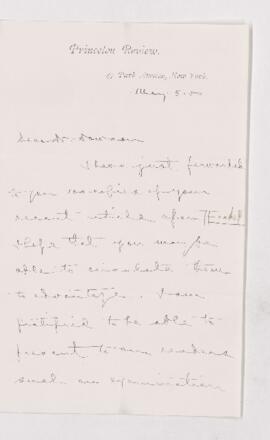 Princeton Review.
Park Avenue, New York.
May 5.
Dear Dr. Dawson
I have just forwarded
to you copies of your
recent article upon
I hope that you may be
able to circulate them
to advantage. I am
gratified to be able to
present to our readers
such an examination